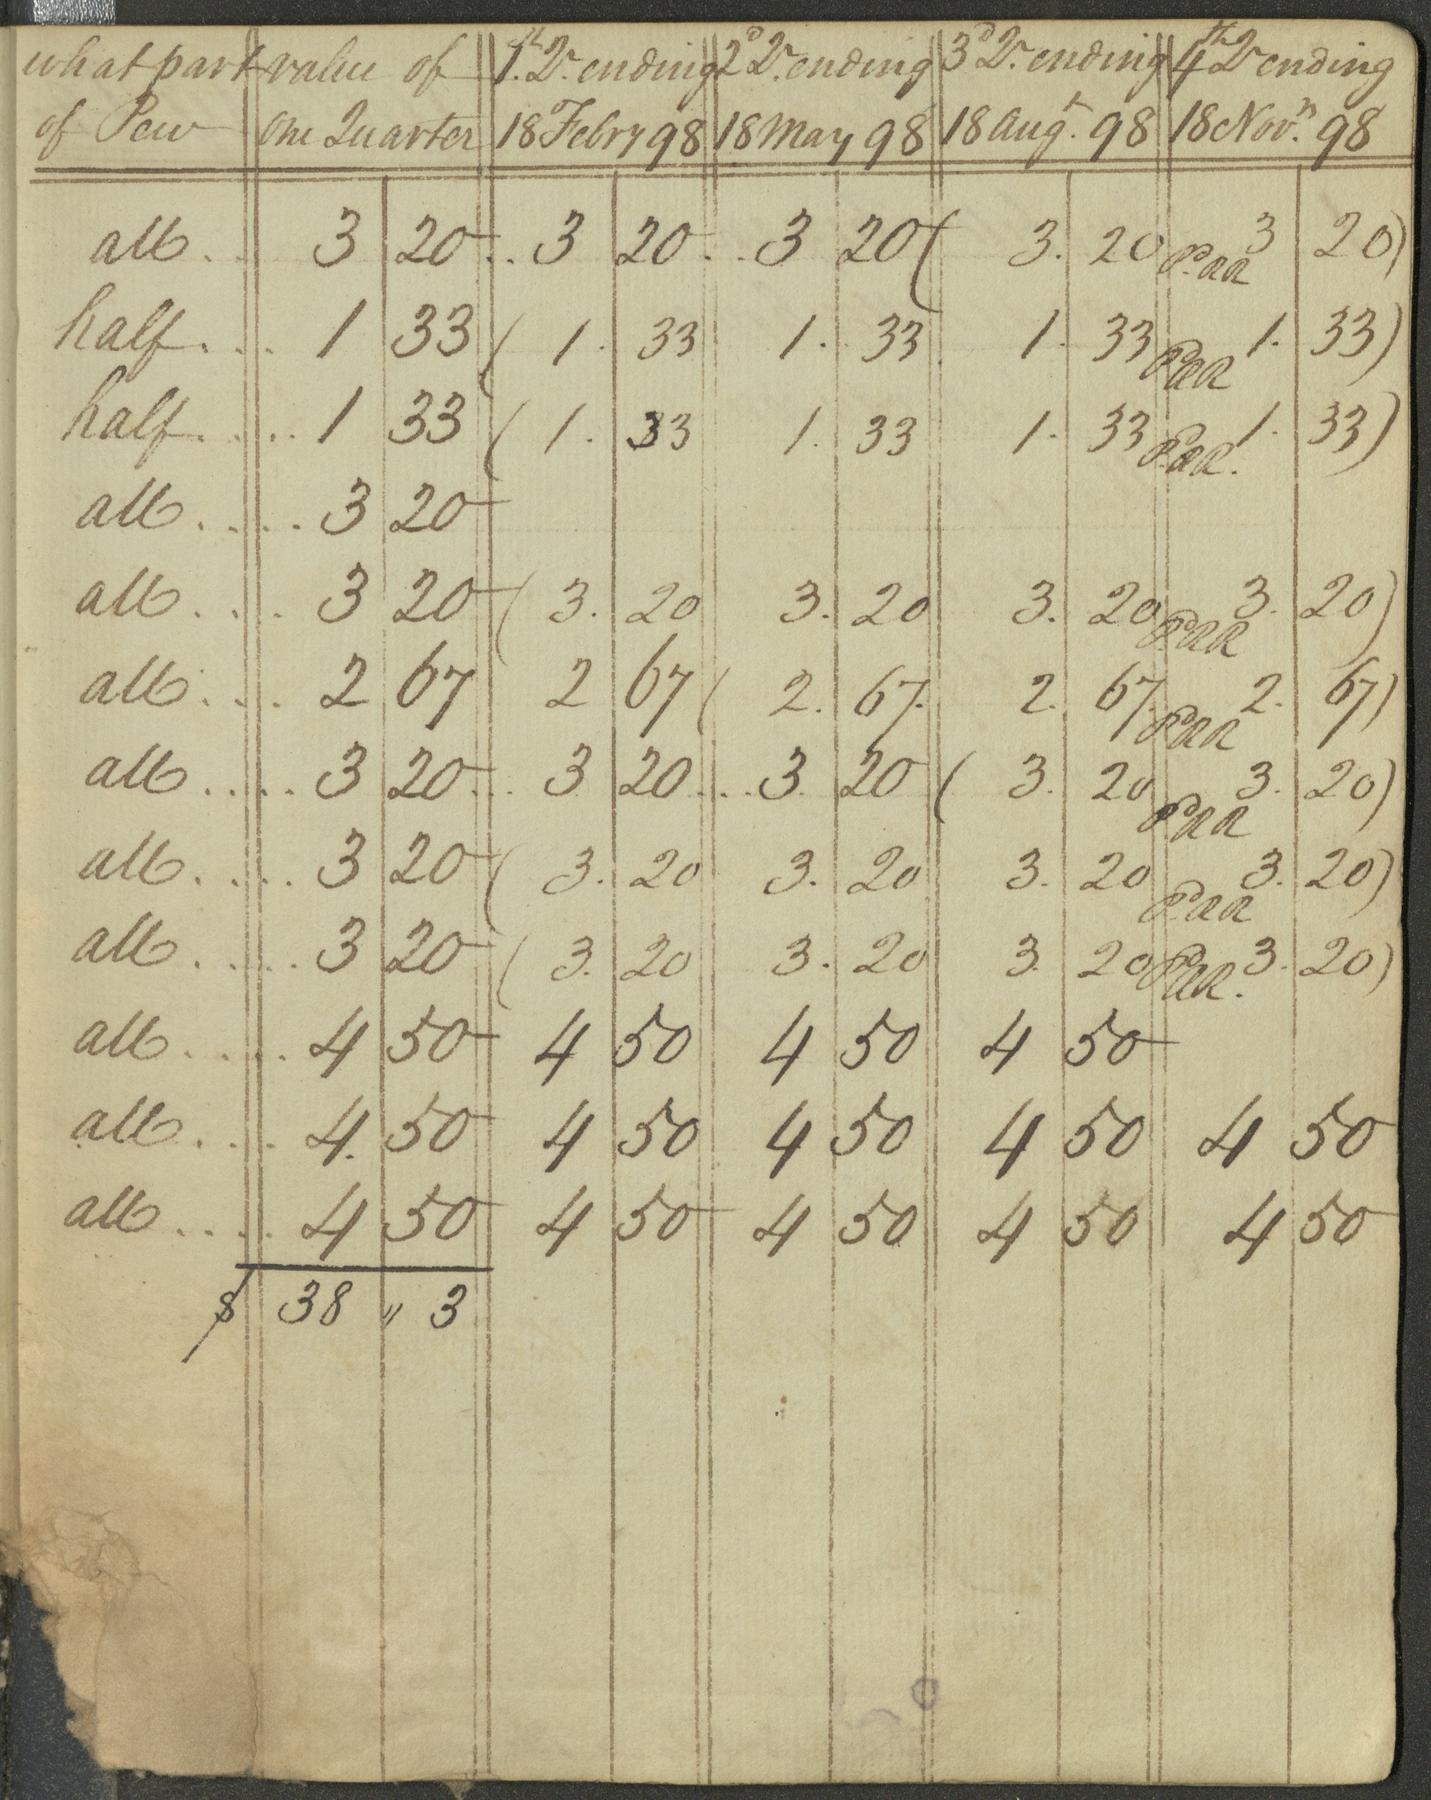 what part value of 1.th Qr. ending 2d Qr. ending 3d Qr. ending 4th Qr ending
of Pew one Quarter 18 Febry 98 18 May 98 18 Augt. 98 18 Novr. 98
all.. 3 20.. 3 20.. 3 20 ( 3. 20 3 20)
half... 1 33 ( 1. 33 1. 33 1. 33 1. 33)
half.... 1 33 ( 1. 33 1. 33 1. 33 1. 33)
all.... 3 20
all.... 3 20 ( 3. 20 3. 20 3. 20 3. 20)
all.... 2 67 2 67 ( 2. 67. 2. 67. 2. 67)
all.... 3 20.. 3 20... 3. 20 ( 3. 20 3. 20)
all.... 3 20 ( 3. 20 3. 20 3. 20 3. 20)
all.... 3 20 ( 3. 20 3. 20 3. 20 3. 20)
all.... 4 50 4 50 4 50 4 50
all.... 4. 50 4 50 4 50 4 50 4 50
all.... 4 50 4 50 4 50 4 50 4 50
$ 38 " 3